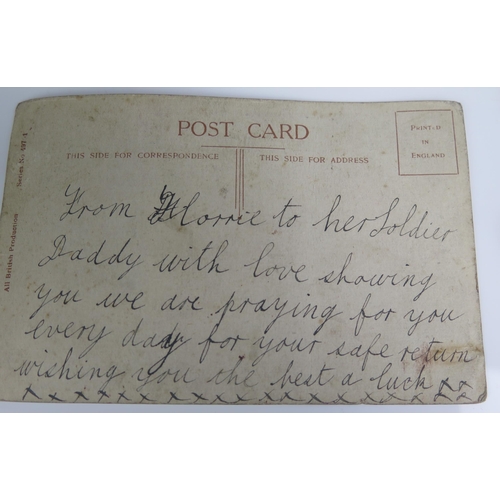 POST CARD
THIS SIDE FOR CORRESPONDENCE
THIS SIDE FOR ADDRESS
PRINTED
IN
ENGLAND
All British Production
From Florrie to her Soldier
Daddy with love showing
you we are praying for you
every day for your safe return
wishing you the best a luck xx
xxxxxxxxxxxxxxxxxxxxxxx